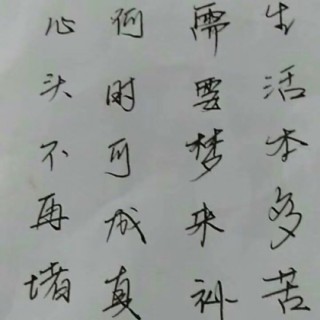 生活本多苦
需要梦来补
何时可成真
心头不再堵